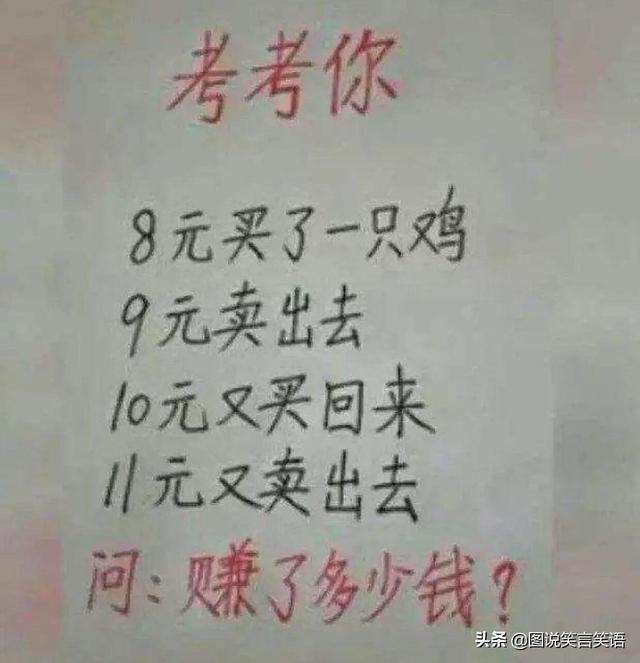 考考你
8元买了一只鸡
9元卖出去
10元又买回来
11元又卖出去
问:赚了多少钱?
头条 @图说笑言笑语